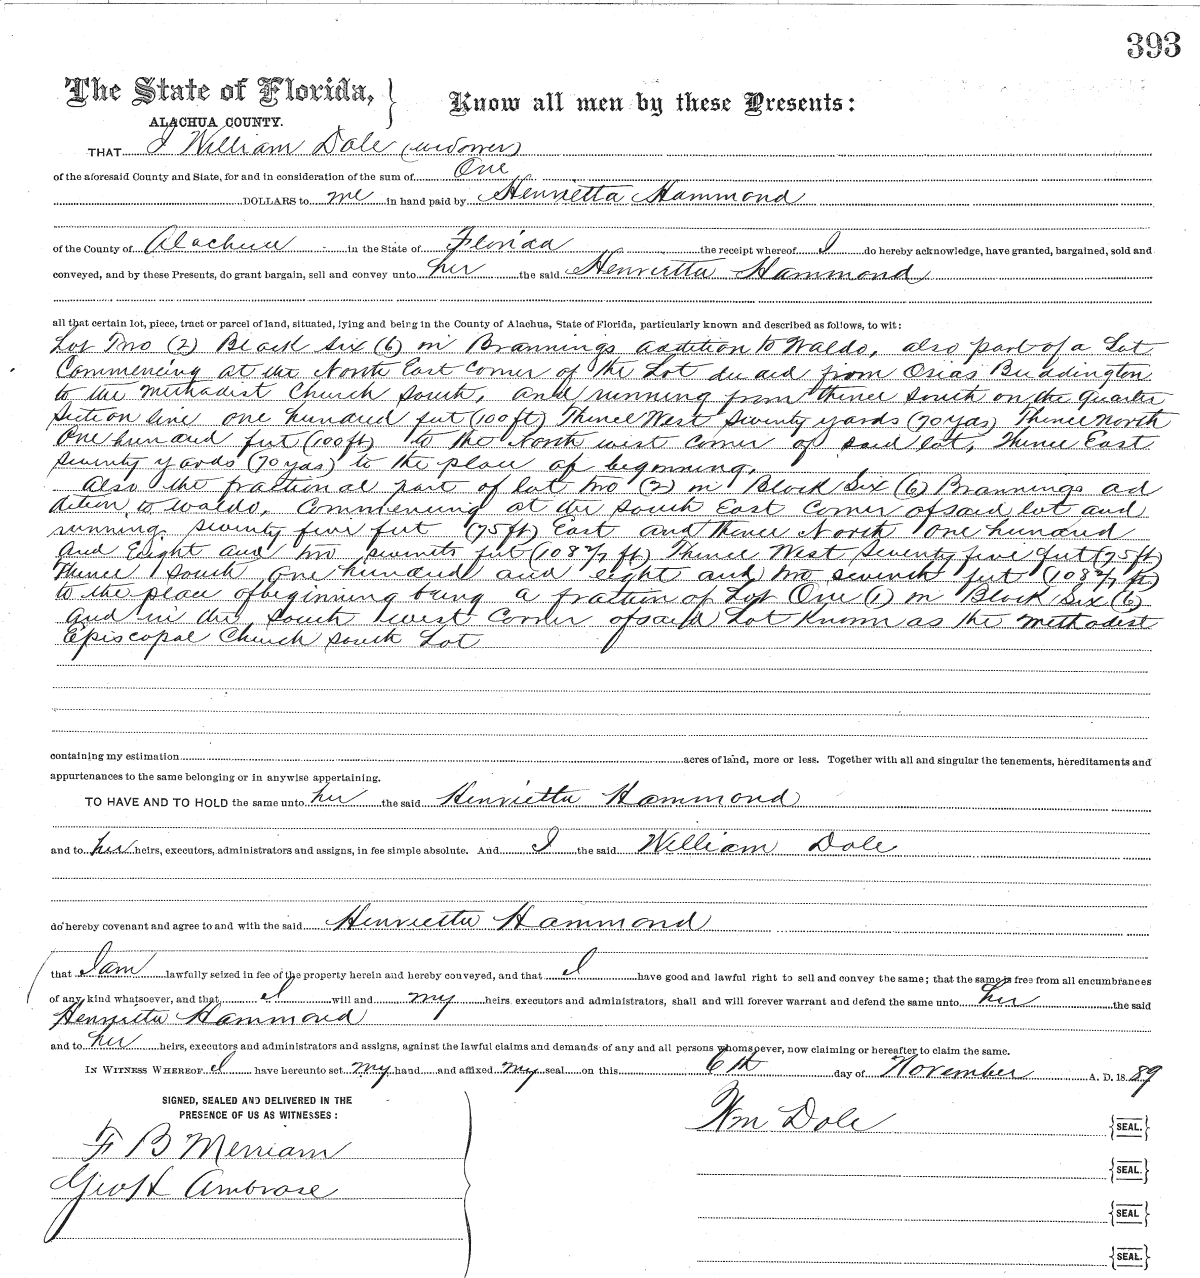 393
The State of Florida, }
Know all men by these Presents:
ALACHUA COUNTY.
THAT I William Dale (widower)
of the aforesaid County and State, for and in consideration of the sum of One
DOLLARS to me in hand paid by Henrietta Hammond
of the County of Alachua in the State of Florida the receipt whereof I do hereby acknowledge, have granted, bargained, sold and
conveyed, and by these Presents, do grant bargain, sell and convey unto her the said Henrietta Hammond
all that certain lot, piece, tract or parcel of land, situated, lying and being in the County of Alachua, State of Florida, particularly known and described as follows, to wit:
Lot Two (2) Block Six (6) in Brannings addition to Waldo, also part of a Lot
Commencing at the North East Corner of the Lot deeded from Osias Buddington
to the Methodist Church South, and running from thence South on the quarter
Section line one hundred feet (100 ft) Thence West Seventy yards (70 yds) Thence North
One hundred feet (100 ft) to the North west Corner of said lot, Thence East
Seventy yards (70 yds) to the place of beginning.
Also the fractional part of lot two (2) in Block Six (6) Brannings ad
dition to Waldo, Commencing at the South East Corner of said lot and
running seventy five feet (75 ft) East and Thence North one hundred
and Eight and two sevenths feet (108 2/7 ft) Thence West Seventy five feet (75 ft)
Thence South one hundred and eight and two seventh feet (108 2/7 ft)
to the place of beginning being a fraction of Lot One (1) in Block Six (6)
and in the South West Corner of said Lot Known as the Methodist
Episcopal Church South Lot
containing my estimation acres of land, more or less. Together with all and singular the tenements, hereditaments and
appurtenances to the same belonging or in anywise appertaining.
TO HAVE AND TO HOLD the same unto her the said Henrietta Hammond
and to her heirs, executors, administrators and assigns, in fee simple absolute. And I the said William Dale
do hereby covenant and agree to and with the said Henrietta Hammond
that I am lawfully seized in fee of the property herein and hereby conveyed, and that I have good and lawful right to sell and convey the same; that the same is free from all encumbrances
of any kind whatsoever, and that I will and my heirs executors and administrators, shall and will forever warrant and defend the same unto her the said
Henrietta Hammond
and to her heirs, executors and administrators and assigns, against the lawful claims and demands of any and all persons whomsoever, now claiming or hereafter to claim the same.
IN WITNESS WHEREOF I have hereunto set my hand and affixed my seal on this 6th day of November A. D. 1889
SIGNED, SEALED AND DELIVERED IN THE
PRESENCE OF US AS WITNESSES:
Wm Dale {SEAL.}
F B Merriam
{SEAL.}
Geo H Ambrose
{SEAL}
{SEAL.}